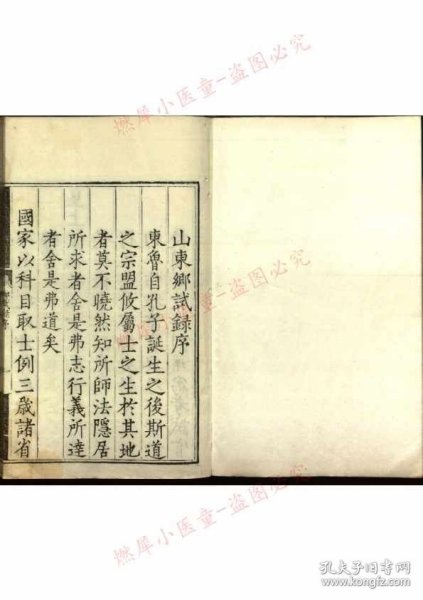 山東鄉試錄序
東魯自孔子誕生之後斯道
之宗盟攸屬士之生於其地
者莫不曉然知所師法隱居
所求者舍是弗志行義所達
者舍是弗道矣
國家以科目取士例三歲諸省
燃犀小医童-盗图必究
燃犀小医童-盗图必究
燃犀小医童-盗图必究
孔夫子旧书网
www.kongfz.com